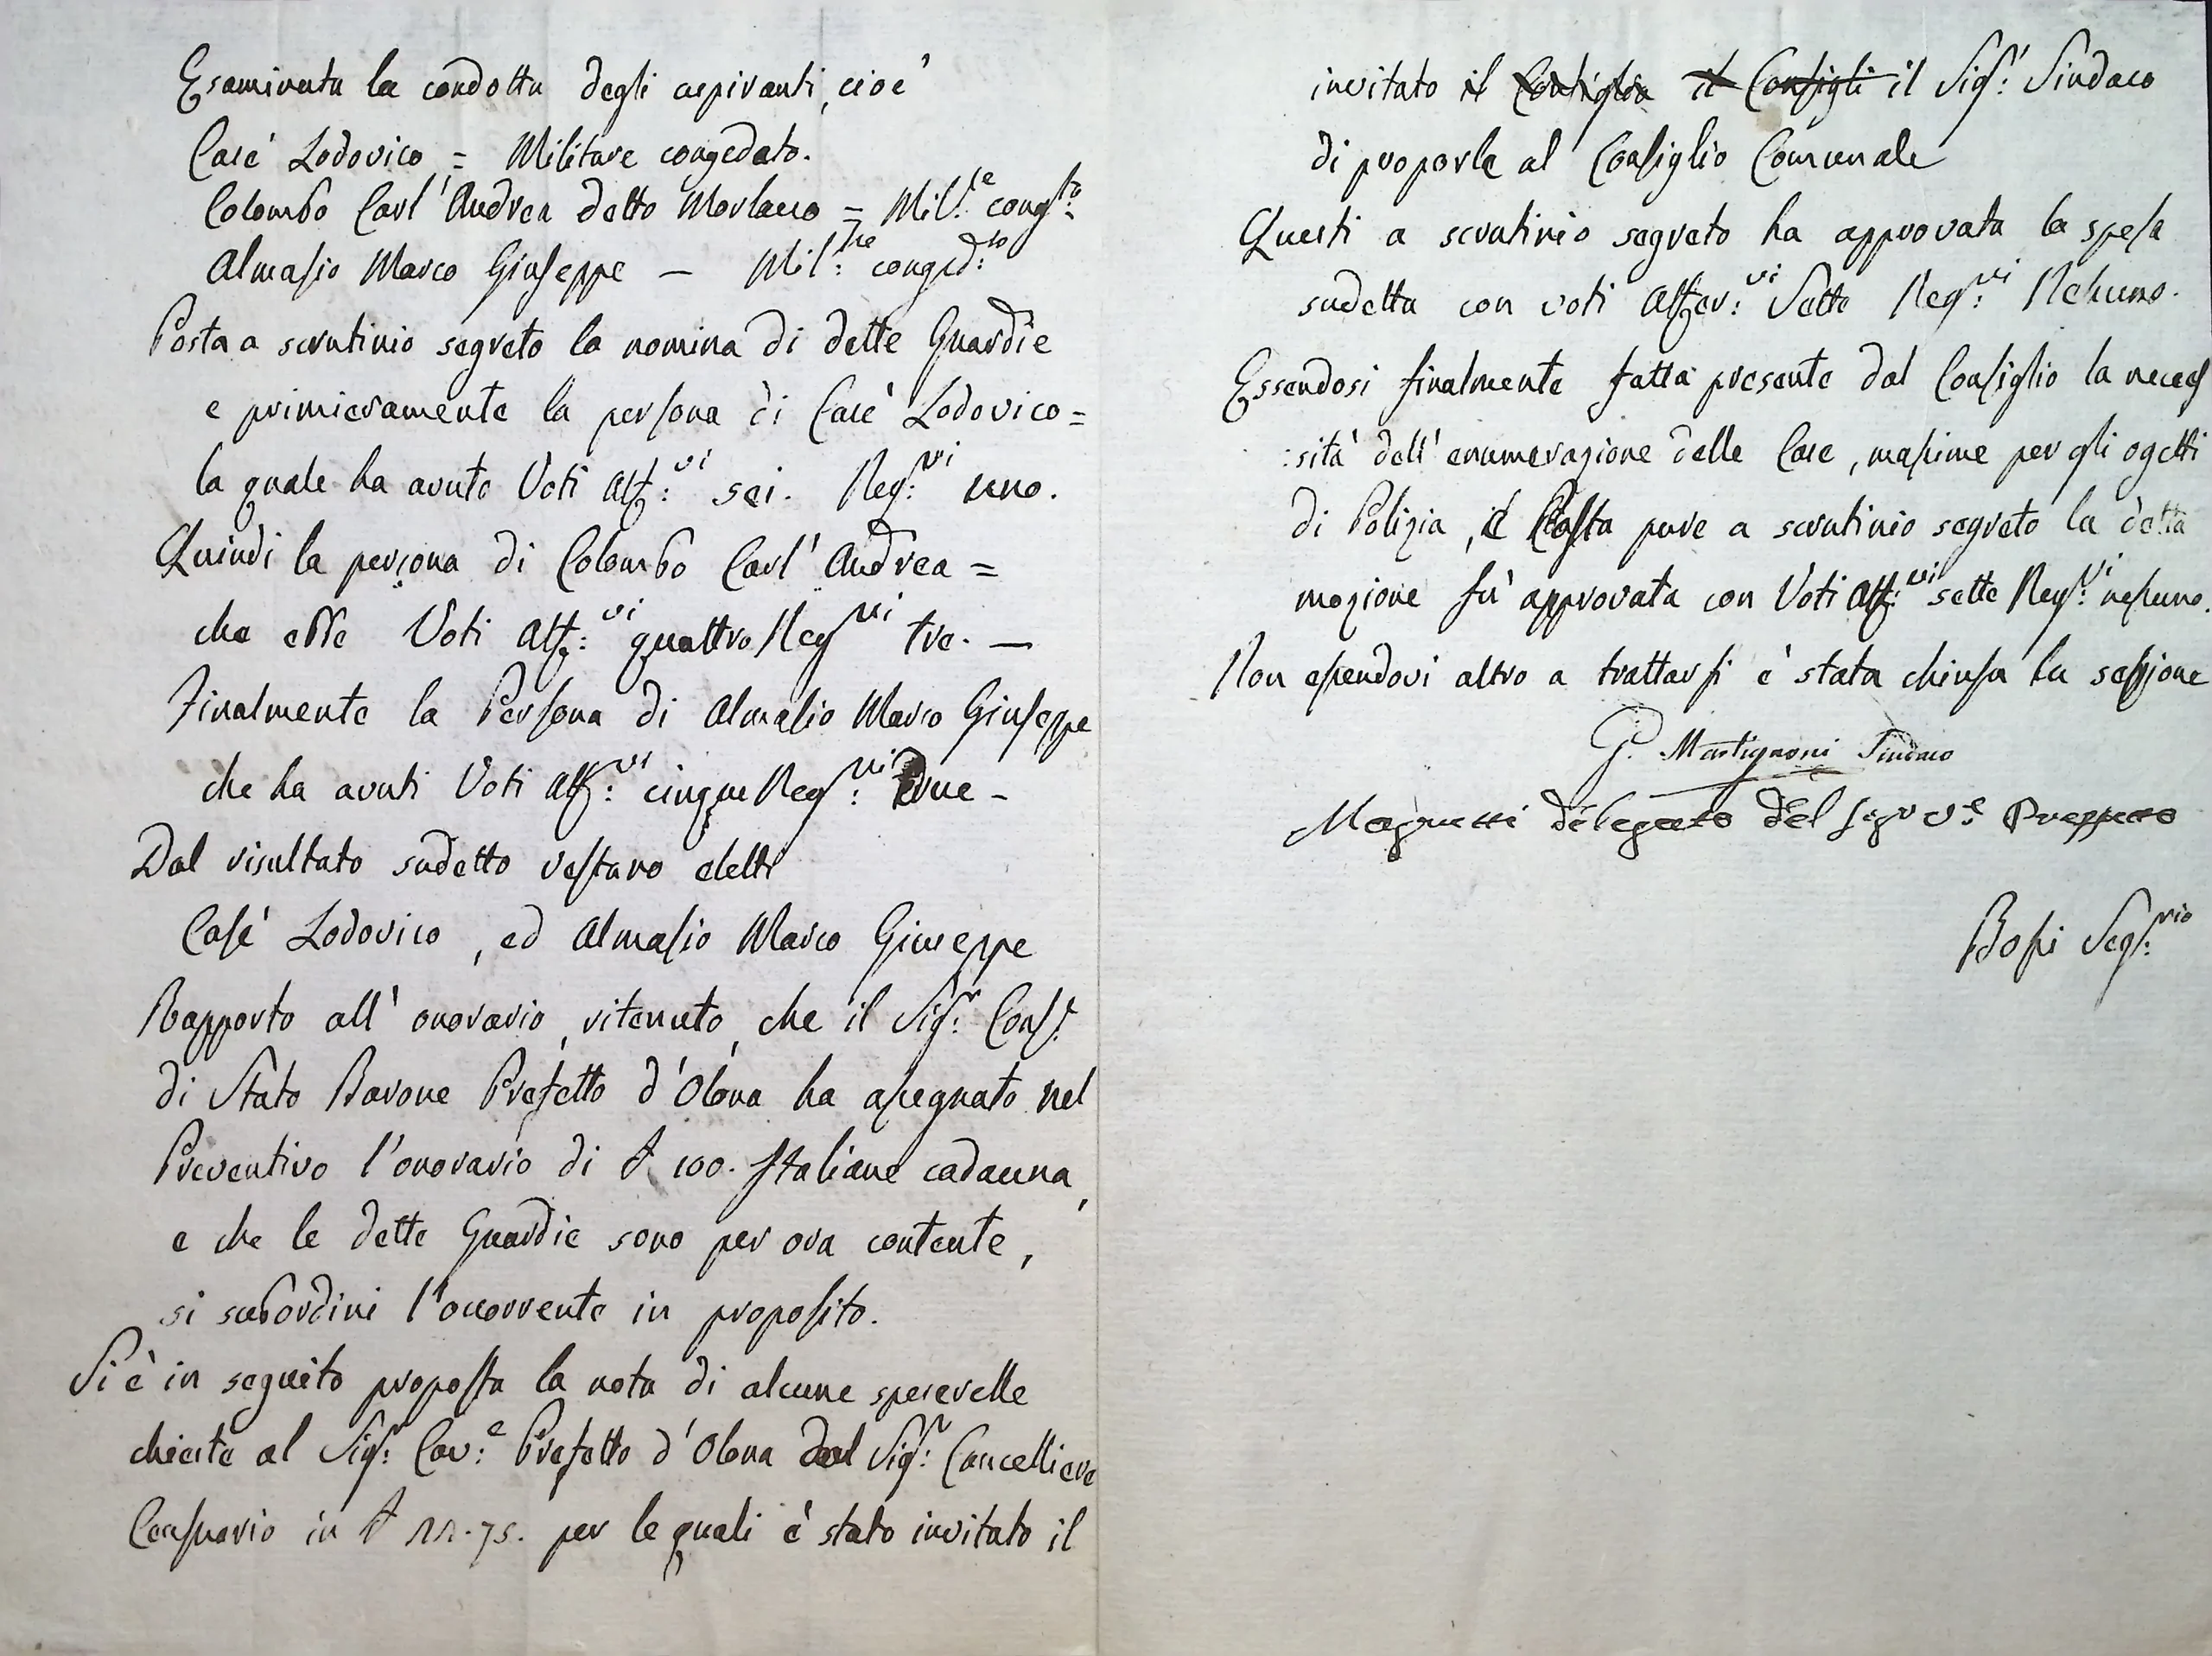 Esaminata la condotta degli aspiranti, cioè
Casè Lodovico = Militare congedato.
Colombo Carl'Andrea detto Morlacco = Mil.e cong.to
Almasio Marco Giuseppe — Mil:re conged:to
Posta a scrutinio segreto la nomina di dette Guardie
e primieramente la persona di Casè Lodovico =
la quale ha avute Voti Aff:vi sei. Neg:vi uno.
Quindi la persona di Colombo Carl'Andrea =
che ebbe Voti Aff:vi quattro Neg:vi tre. —
Finalmente la Persona di Almasio Marco Giuseppe
che ha avuti Voti Aff:vi cinque Neg:vi due -
Dal risultato sudetto restano eletti
Casè Lodovico, ed Almasio Marco Giuseppe
Rapporto all'onorario, ritenuto, che il Sig:r Cons:e
di Stato Barone Prefetto d'Olona ha assegnato nel
Preventivo l'onorario di £ 100. Italiane cadauna,
e che le dette Guardie sono per ora contente,
si subordini l'occorrente in proposito.
Si è in seguito proposta la nota di alcune speserelle
chieste al Sig:r Cav:e Prefetto d'Olona dal Sig:r Cancelliere
Censuario in £ 22.75. per le quali è stato invitato il
invitato il Consiglio il Consigli il Sig:r Sindaco
di proporle al Consiglio Comunale
Questi a scrutinio segreto ha approvata la spesa
sudetta con voti Affer:vi Sette Neg:vi Nessuno.
Essendosi finalmente fatta presente dal Consiglio la neces
:sità dell'enumerazione delle Case, massime per gli ogetti
di Polizia, e Posta pure a scrutinio segreto la detta
mozione fù approvata con Voti Aff:vi sette Neg:vi nessuno.
Non essendovi altro a trattarsi è stata chiusa la sessione
G. Martignoni Sindaco
delegato del Prefetto
Bossi Seg:rio